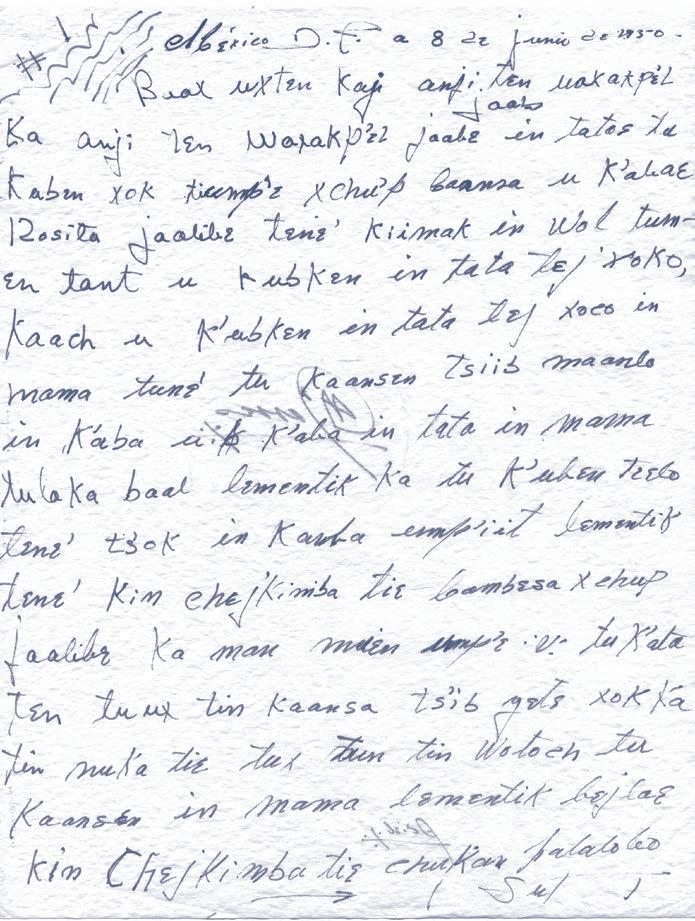 México D.F. a 8 de junio de 1950.
Baax uxten kaji anji ten uaxakpél
jaabe
Ka anji ten waxakp'el jaabe in tatoe tu
Kaben xok tiump'e xchup baansa u K'abae
Rosita jaalibe tene' kiimak in wol tum-
en tant u kubken in tata lej xoko,
Kaach u K'ubken in tata lej xoco in
mama tune' tu kaansen tsiib maanlo
in K'aba u K'aba in tata in mama
tulaka baal lementik ka tu K'uben teelo
tene' tsok in Kanba ump'iit lementik
tene' kin chejkimba tie bambesa xchup
jaalibe ka man ump'e tu K'ata
ten tuux tin kaansa ts'iib yete xok ka
tin nuka tie tux tin wotoch tu
Kaansen in mama lementik bejlae
kin Chejkimba tie chukan palalobo